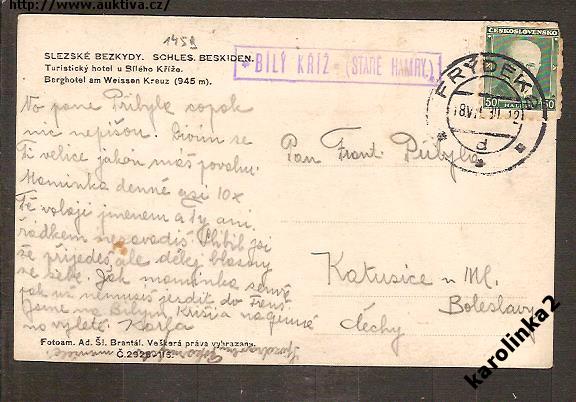 http://www.auktiva.cz/
1459
SLEZSKÉ BEZKYDY. SCHLES. BESKIDEN.
Turistický hotel u Bílého Kříže.
Berghotel am Weissen Kreuz (945 m).
BÍLÝ KŘÍŽ (STARÉ HAMRY)
ČESKOSLOVENSKO
50 HALÉŘŮ 50
FRÝDEK 2
d
No pane Přibyle copak
nic nepíšou. Divím se
Ti velice jakou máš povahu.
Maminka denně asi 10x
Tě volají jmenem a Ty ani
řádkem nezavadíš. Slíbil jsi
že přijedeš ale dělej
ze sebe. Jak maminka
pak už nemusíš jezdit do
Jsme na Bílym Kříži
na výletě. Karla
Pan Frant. Přibyla
Katusice u Ml.
Boleslavy
Čechy
Fotoam. Ad. Šl. Brantál. Veškerá práva vyhrazena.
karolinka2